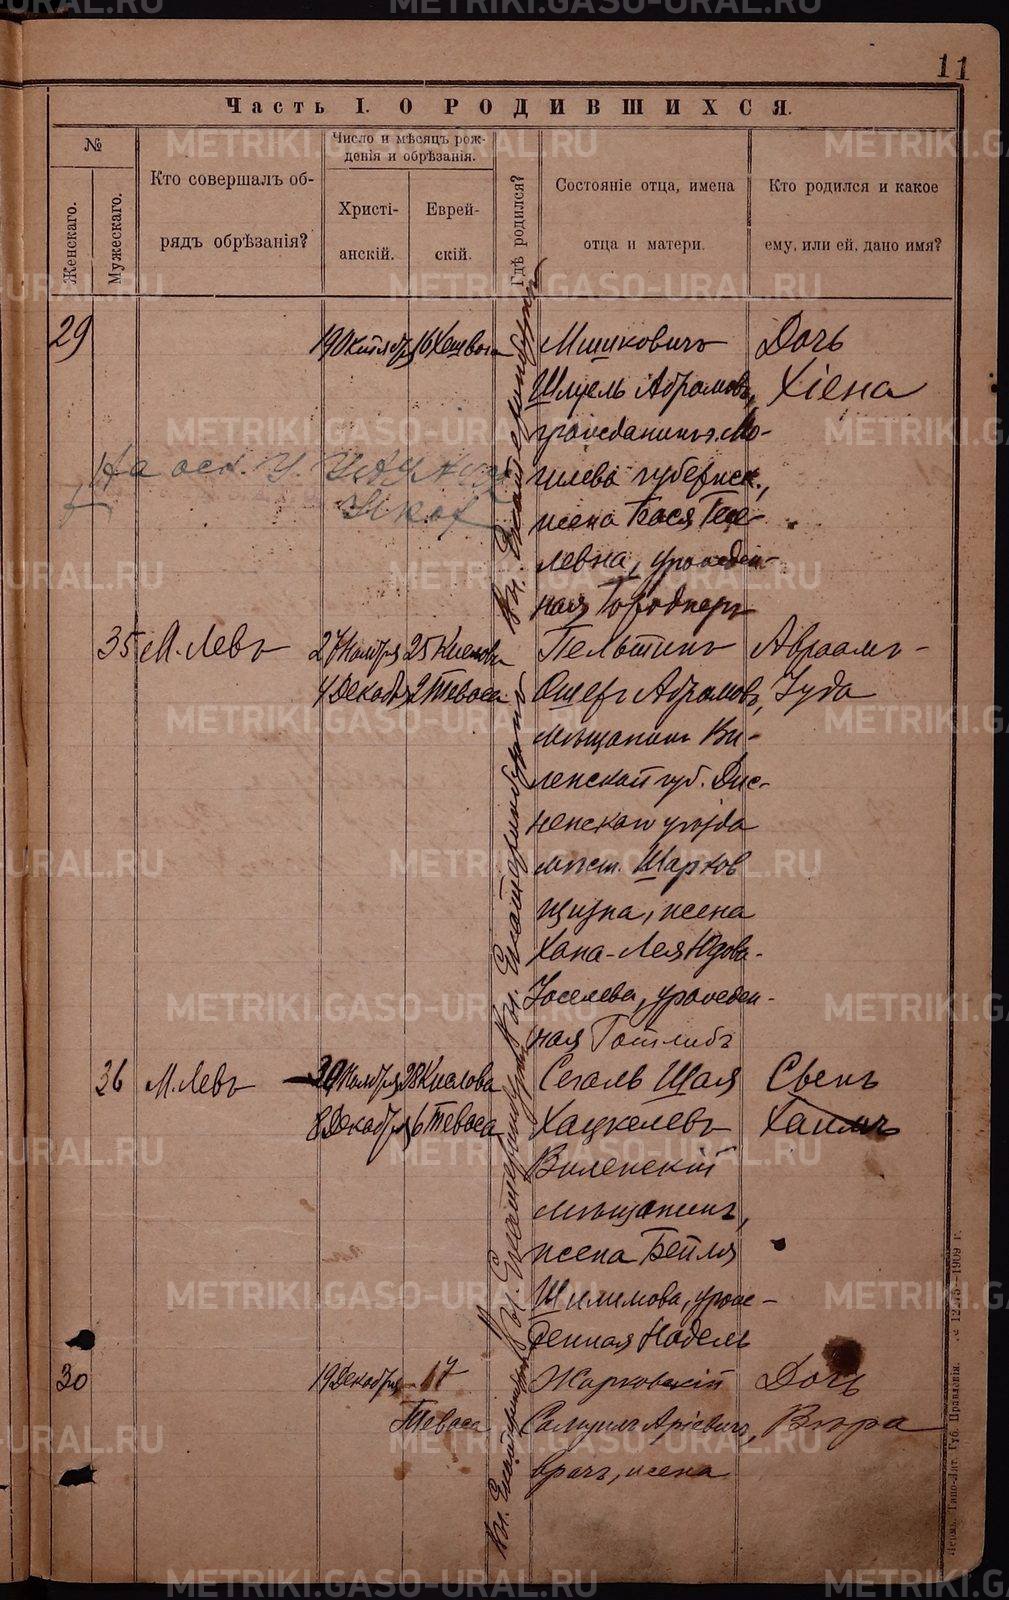 11
Часть I. О РОДИВШИХСЯ.
№
Женскаго.
Мужескаго.
Кто совершалъ об-
рядъ обрѣзанія?
Число и мѣсяцъ рож-
денія и обрѣзанія.
Христі-
анскій.
Еврей-
скій.
Гдѣ родился?
Состояніе отца, имена
отца и матери.
Кто родился и какое
ему, или ей, дано имя?
29
19 Октября 16 Хешвона
Въ г. Екатеринбургѣ
Мишковичъ
Шлуель Абрамовъ,
гражданинъ Мо-
гилева губернск.,
жена Бася
левна, урожден-
ная
Дочь
Хіена
На осн.
35 М. Левъ
27 Ноября 25 Кислова
4 Декабря 2 Теваса
Въ г. Екатеринбургѣ
Пельтинъ
Ошеръ Абрамовъ,
мѣщанинъ Ви-
ленской губ. Дис-
ненскаго уѣзда
мѣст. Шарков
щизна, жена
Хана-Лея Юдова-
Іоселева, урожден-
ная Готлибъ
Авраамъ-
Іуда
36 М. Левъ
30 Ноября 28 Кислова
8 Декабря 6 Теваса
Въ г. Екатеринбургѣ
Сегаль Шая
Хацкелевъ
Виленскій
мѣщанинъ,
жена Бейля
Шлимова, урож-
денная Надель
Свенъ
Хаимъ
30
19 Декабря 17
Теваса
Въ г. Екатеринбургѣ
Жарковскій
Самуилъ Аріевичъ,
врачъ, жена
Дочь
Вѣра
Пермь. Типо-Лит. Губ. Правленія. 1909 г.
METRIKI.GASO-URAL.RU